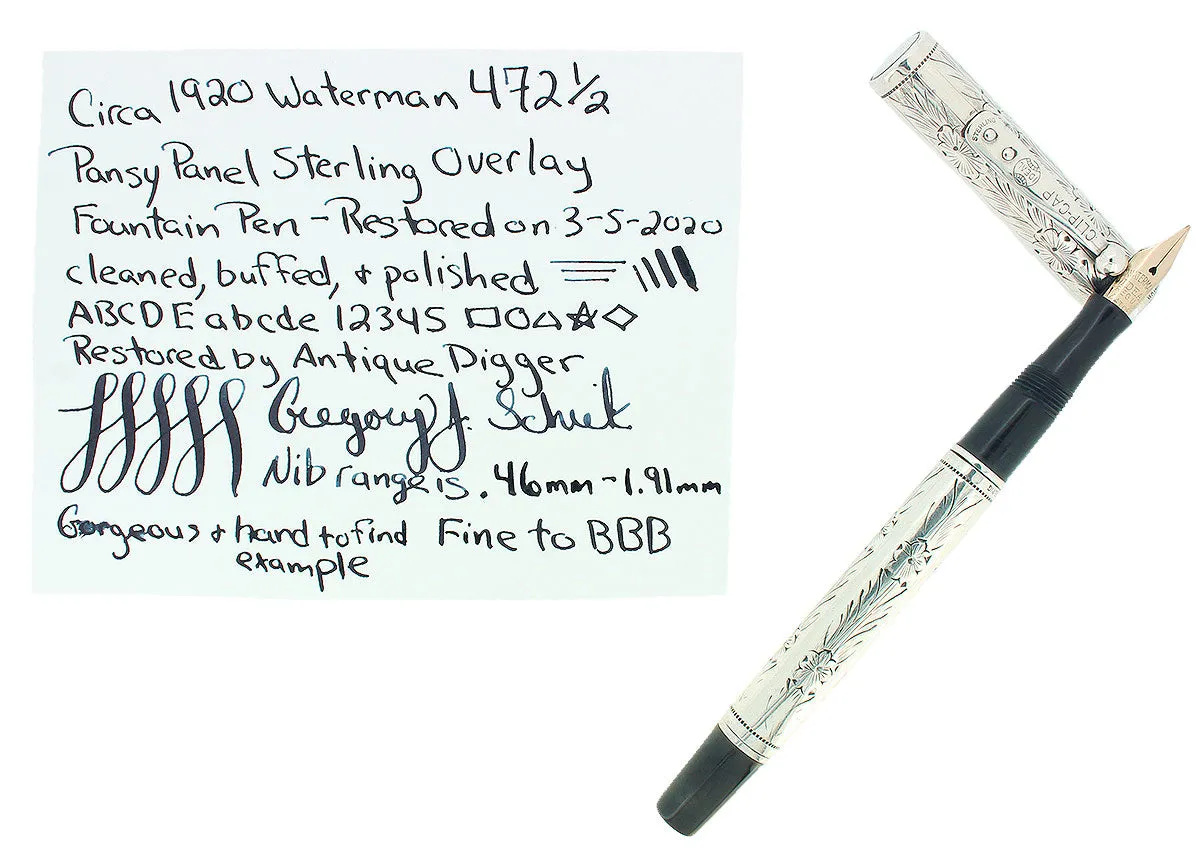 Circa 1920 Waterman 472½
Pansy Panel Sterling Overlay
Fountain Pen - Restored on 3-5-2020
cleaned, buffed, & polished
ABCDE abcde 12345
Restored by Antique Digger
Gregory J.
Nib range is .46mm - 1.91mm
Gorgeous & hard to find Fine to BBB
example
STERLING
IDEAL
CLIP-CAP